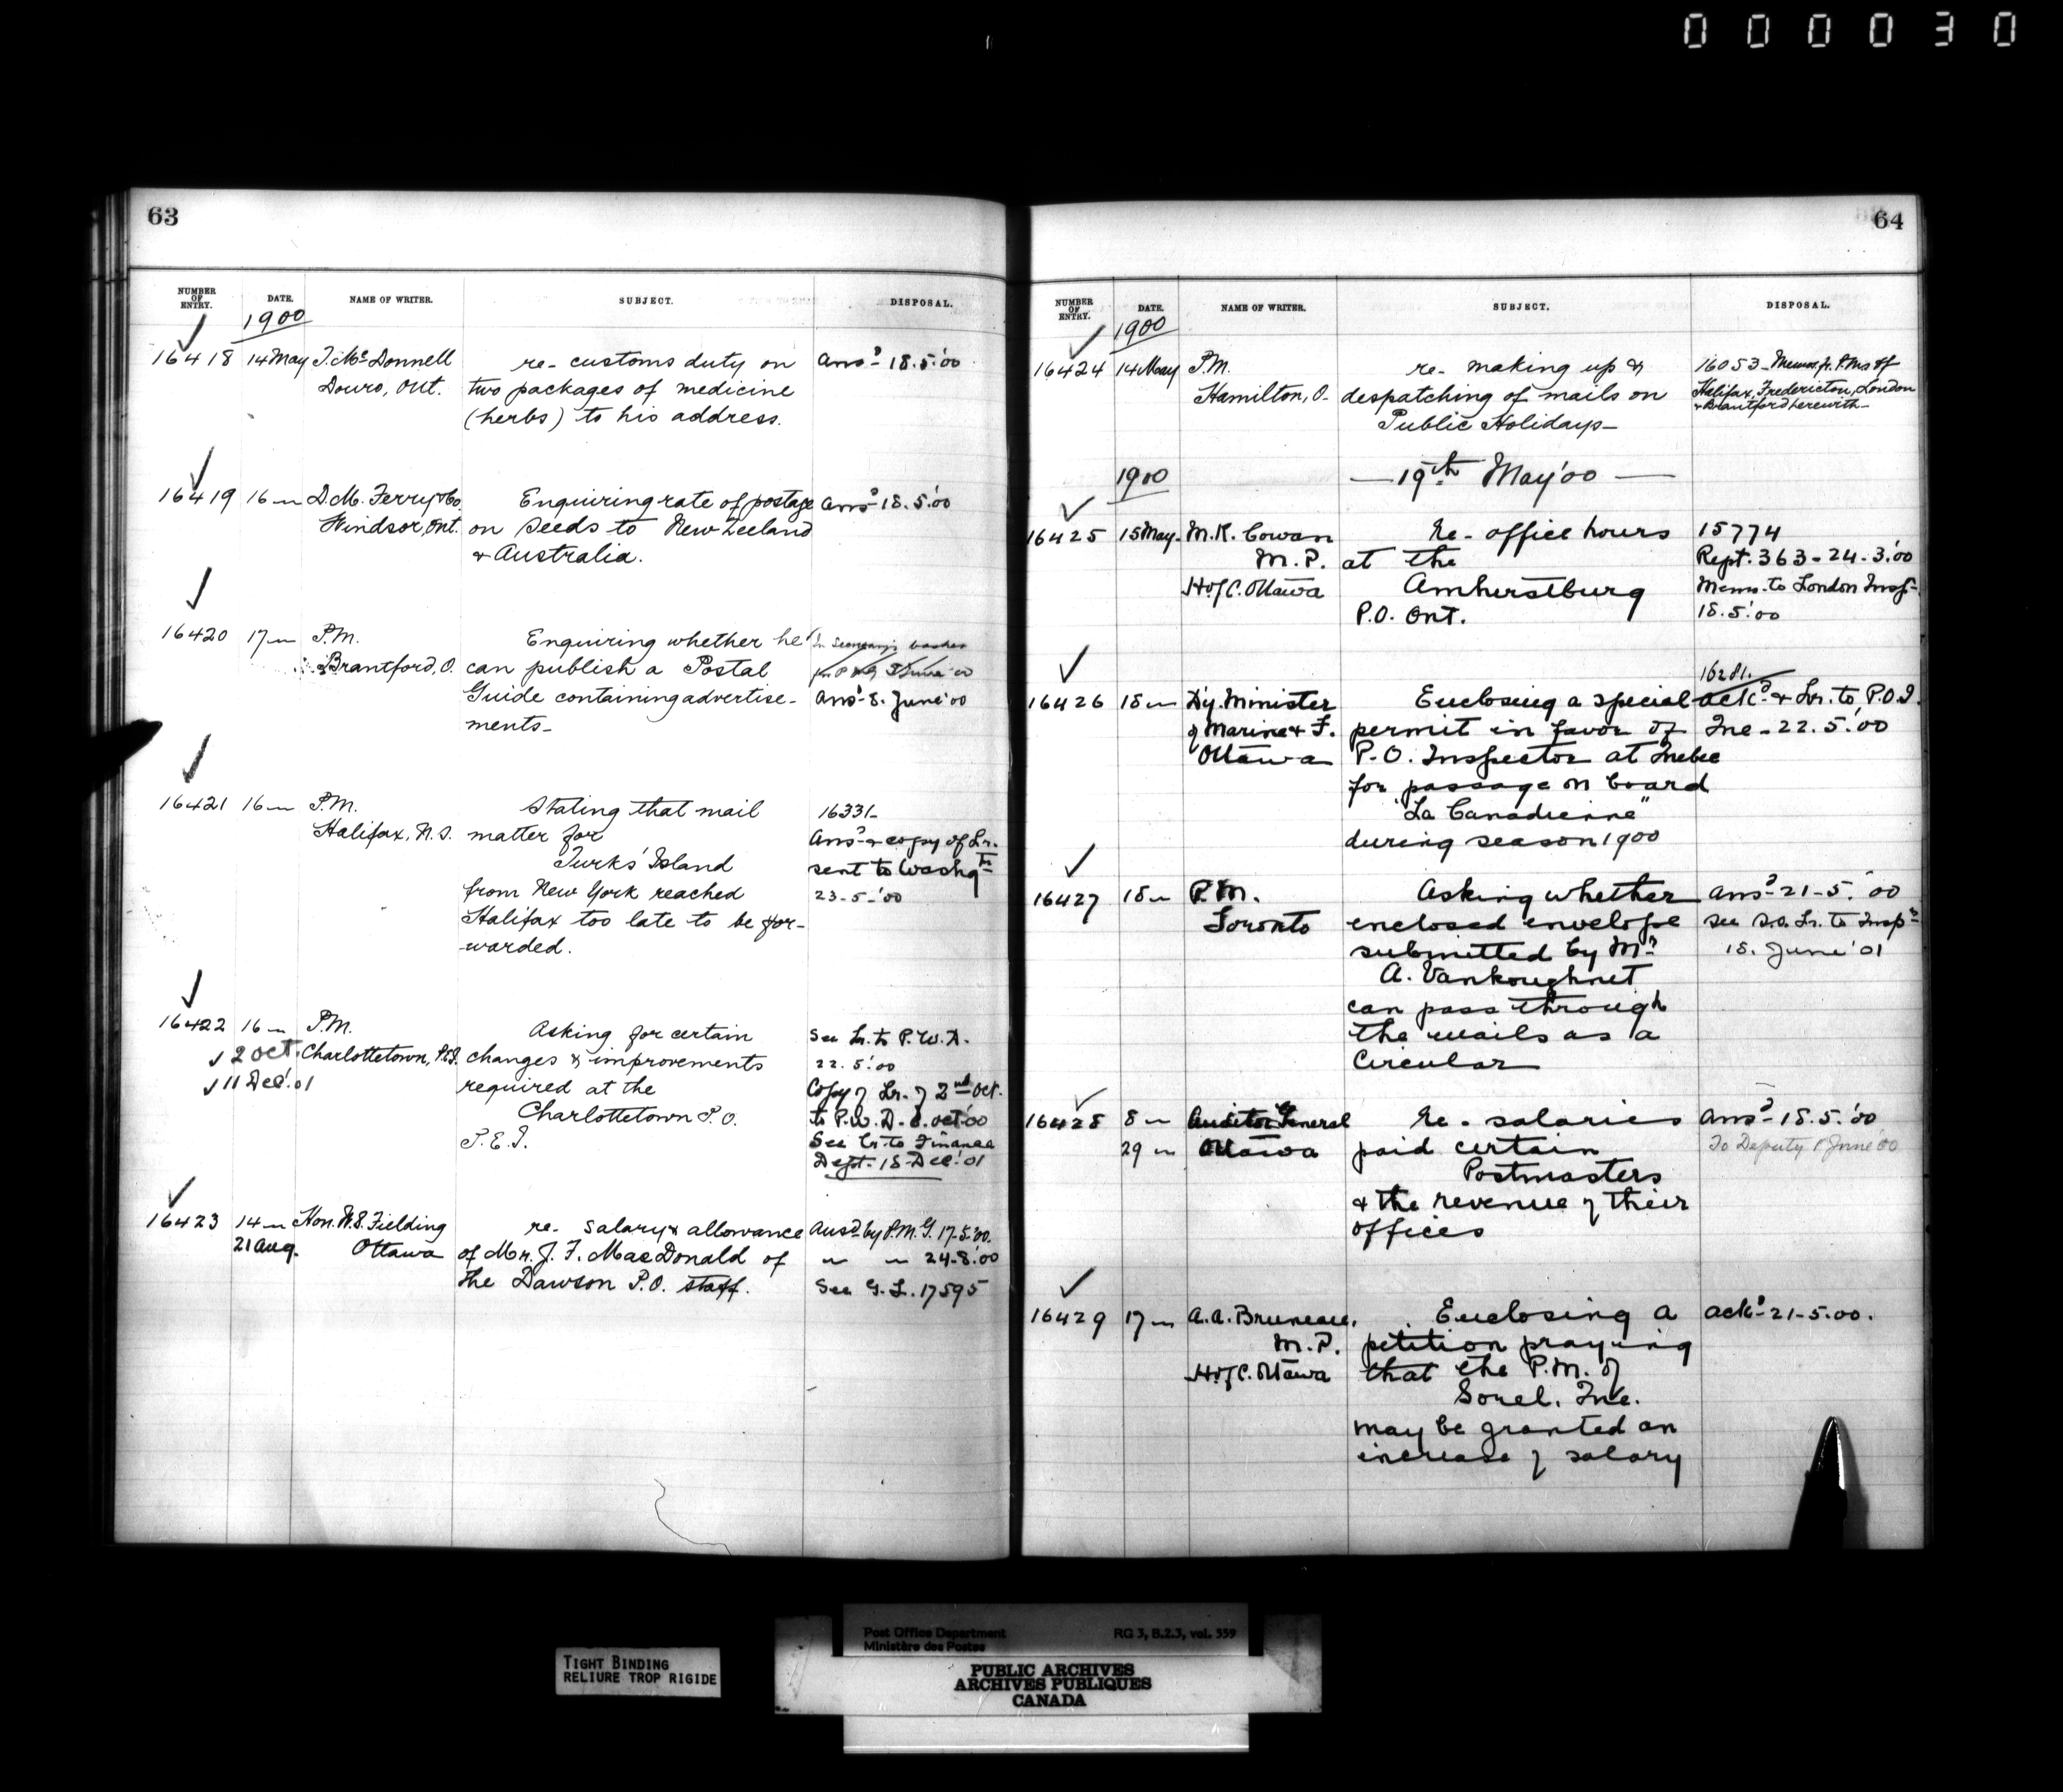 000030
63
NUMBER OF ENTRY. DATE. NAME OF WRITER. SUBJECT. DISPOSAL.
1900
16418 14 May T. McDonnell re- customs duty on Ansd 18.5.'00
Douro, Ont. two packages of medicine
(herbs) to his address.
16419 16 " D.M. Ferry & Co. Enquiring rate of postage Ansd 18.5.'00
Windsor, Ont. on seeds to New Zeeland
& Australia.
16420 17 " P.M. Enquiring whether he In Secretary's basket
Brantford, O. can publish a Postal for P.M.G. June '00
Guide containing advertise- Ansd 8. June '00
ments-
16421 16 " P.M. Stating that mail 16331-
Halifax, N.S. matter for Ansd & copy of Lr.
Turks' Island sent to Washgtn
from New York reached 23-5-'00
Halifax too late to be for-
warded.
16422 16 " P.M. Asking for certain See Lr. to P.W.D.
2 Oct. Charlottetown, P.E.I. changes & improvements 22.5.'00
11 Dec. '01 required at the Copy of Lr. of 2nd Oct.
Charlottetown P.O. to P.W.D. - 8. Oct '00
P.E.I. See Lr. to Finance
Dept. 18-Dec. '01
16423 14 " Hon. W.S. Fielding re- salary & allowance Ansd by P.M.G. 17-5-'00.
21 Aug. Ottawa of Mr. J. F. MacDonald of " " 24-8-'00
the Dawson P.O. staff. See G.L. 17595
64
NUMBER OF ENTRY. DATE. NAME OF WRITER. SUBJECT. DISPOSAL.
1900
16424 14 May P.M. re- making up & 16053- Memos. fr. P.Ms of
Hamilton, O. despatching of mails on Halifax, Fredericton, London
Public Holidays- & Brantford herewith-
1900 — 19th May '00 —
16425 15 May. M.K. Cowan Re- office hours 15774
M.P. at the Rept. 363-24-3.'00
H of C. Ottawa Amherstburg Memo. to London Insp.
P.O. Ont. 18.5.'00
16281.
16426 18 " Dy. Minister Enclosing a special ackd & Lr. to P.O.I.
of Marine & F. permit in favor of Que-22.5.'00
Ottawa P.O. Inspector at Quebec
for passage on board
"La Canadienne"
during season 1900
16427 18 " P.M. Asking whether Ansd-21-5.'00
Toronto enclosed envelope see S.O. Lr. to Inspr
submitted by Mr. 18. June '01
A. Vankoughnet
can pass through
the mails as a
Circular
16428 8 " Auditor General Re- salaries Ansd-18.5.'00
29 " Ottawa paid certain To Deputy 1 June '00
Postmasters
& the revenue of their
offices
16429 17 " A.A. Bruneau, Enclosing a ackd-21-5.00.
M.P. petition praying
H of C. Ottawa that the P.M. of
Sorel. Que.
may be granted an
increase of salary
Post Office Department RG 3, B.2.3, vol. 559
Ministère des Postes
TIGHT BINDING
RELIURE TROP RIGIDE
PUBLIC ARCHIVES
ARCHIVES PUBLIQUES
CANADA